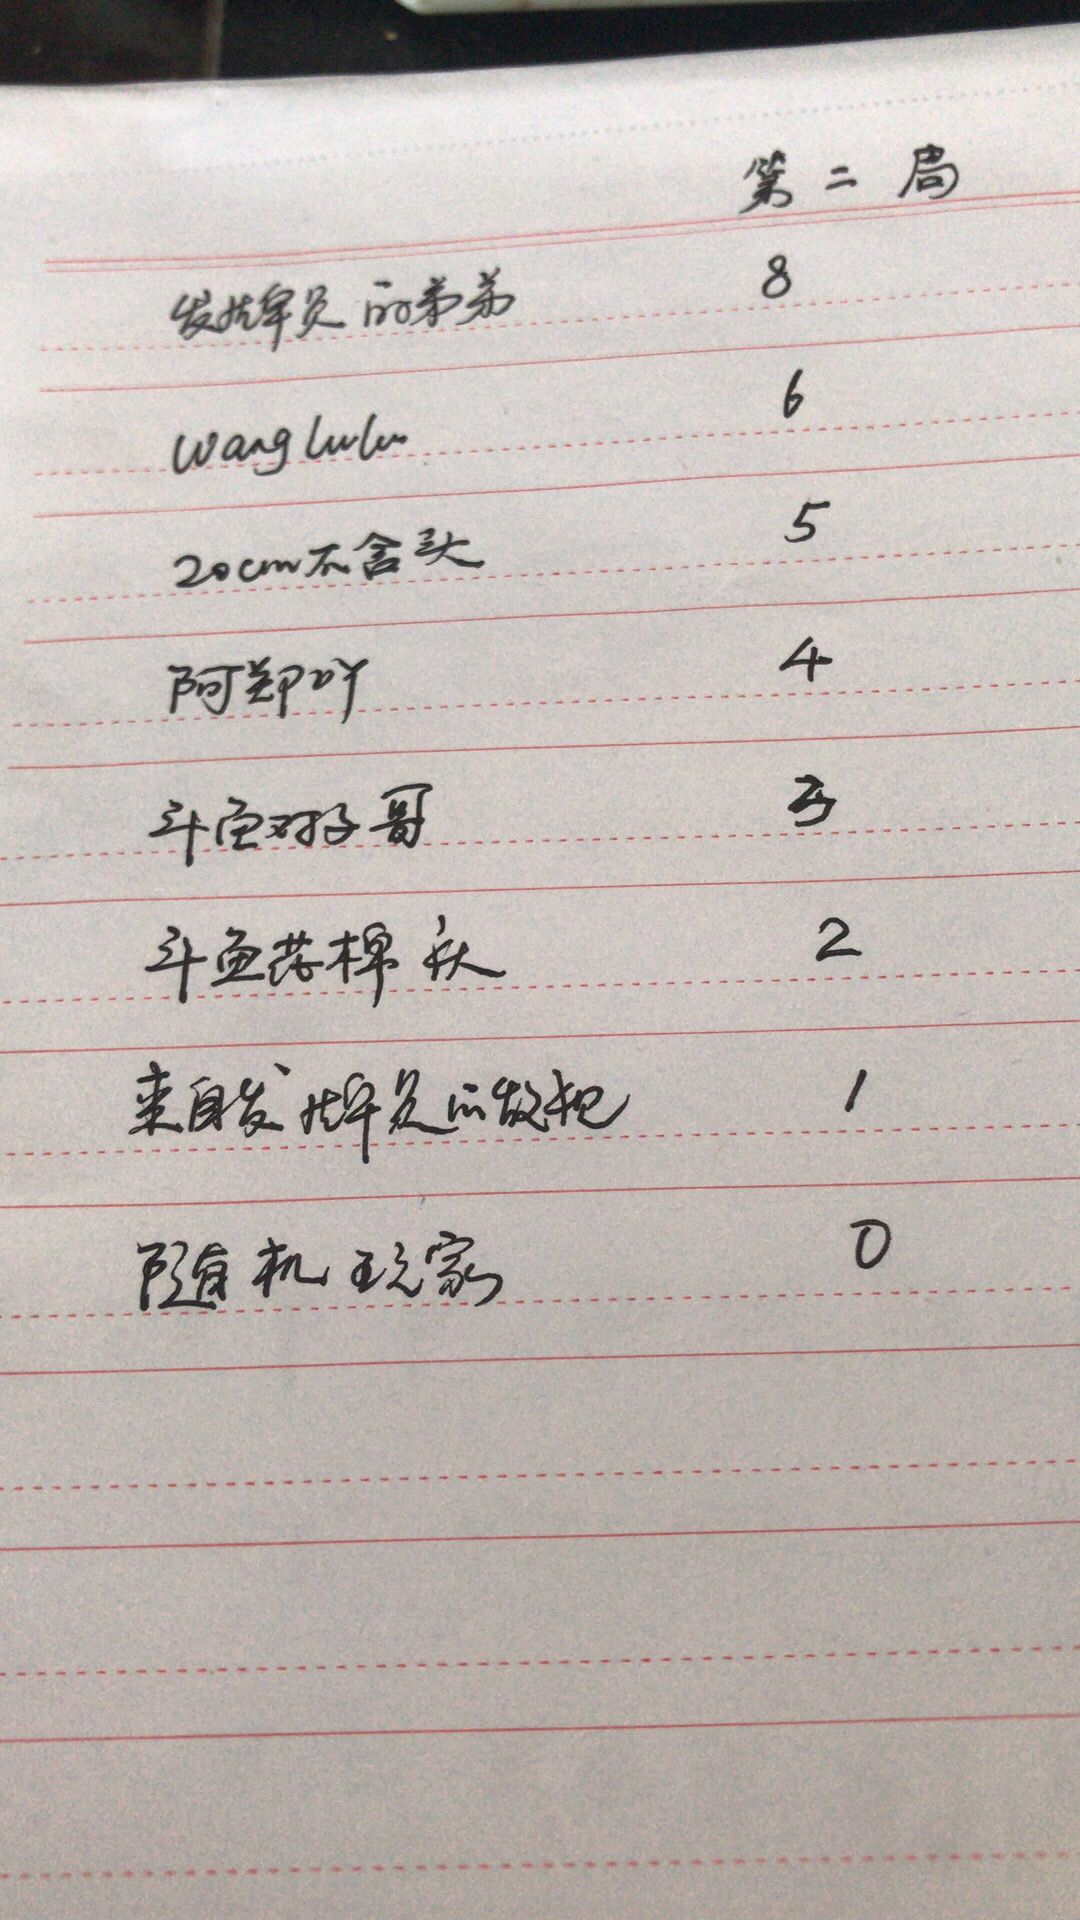 第二局
发牌员的弟弟 8
wang lulu 6
20cm不含头 5
阿郑吖 4
斗鱼对子哥 3
斗鱼药棉 2
来自发牌员的报 1
随机玩家 0